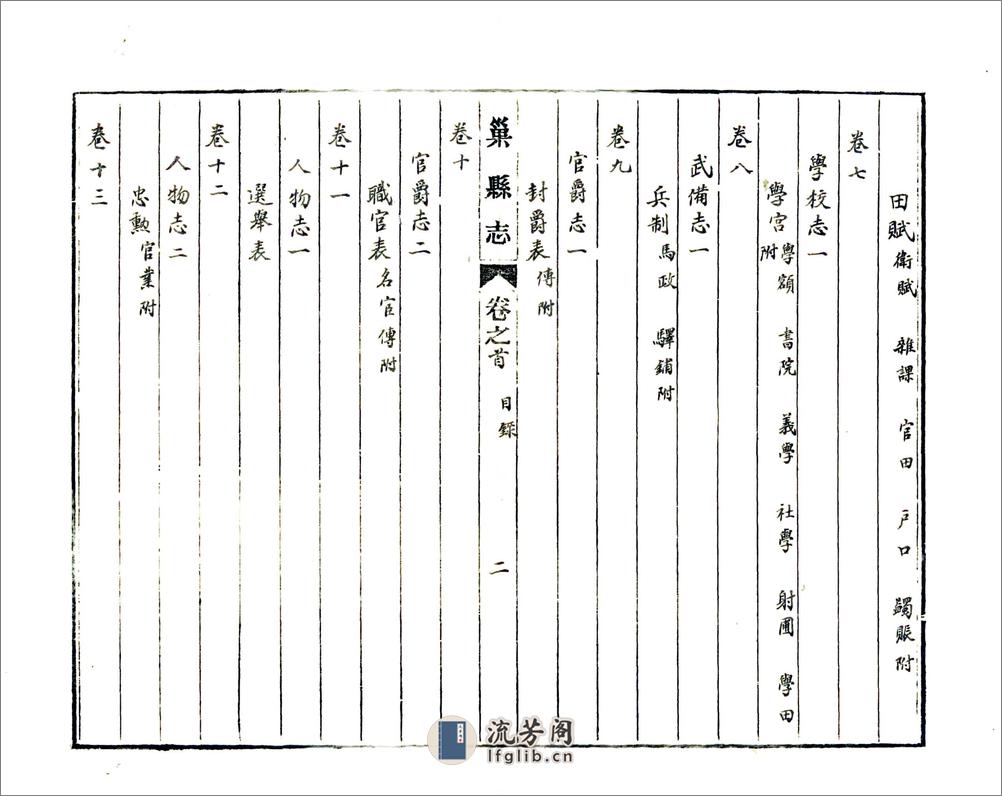 田賦衛賦 雜課 官田 戸口 蠲賑附
卷七
學校志一
學宮學額 書院 義學 社學 射圃 學田附
卷八
武備志一
兵制馬政 驛鋪附
卷九
官爵志一
封爵表傳附
巢縣志 卷之首 目錄 二
卷十
官爵志二
職官表名官傳附
卷十一
人物志一
選舉表
卷十二
人物志二
忠勲官業附
卷十三
流芳阁
lfglib.cn